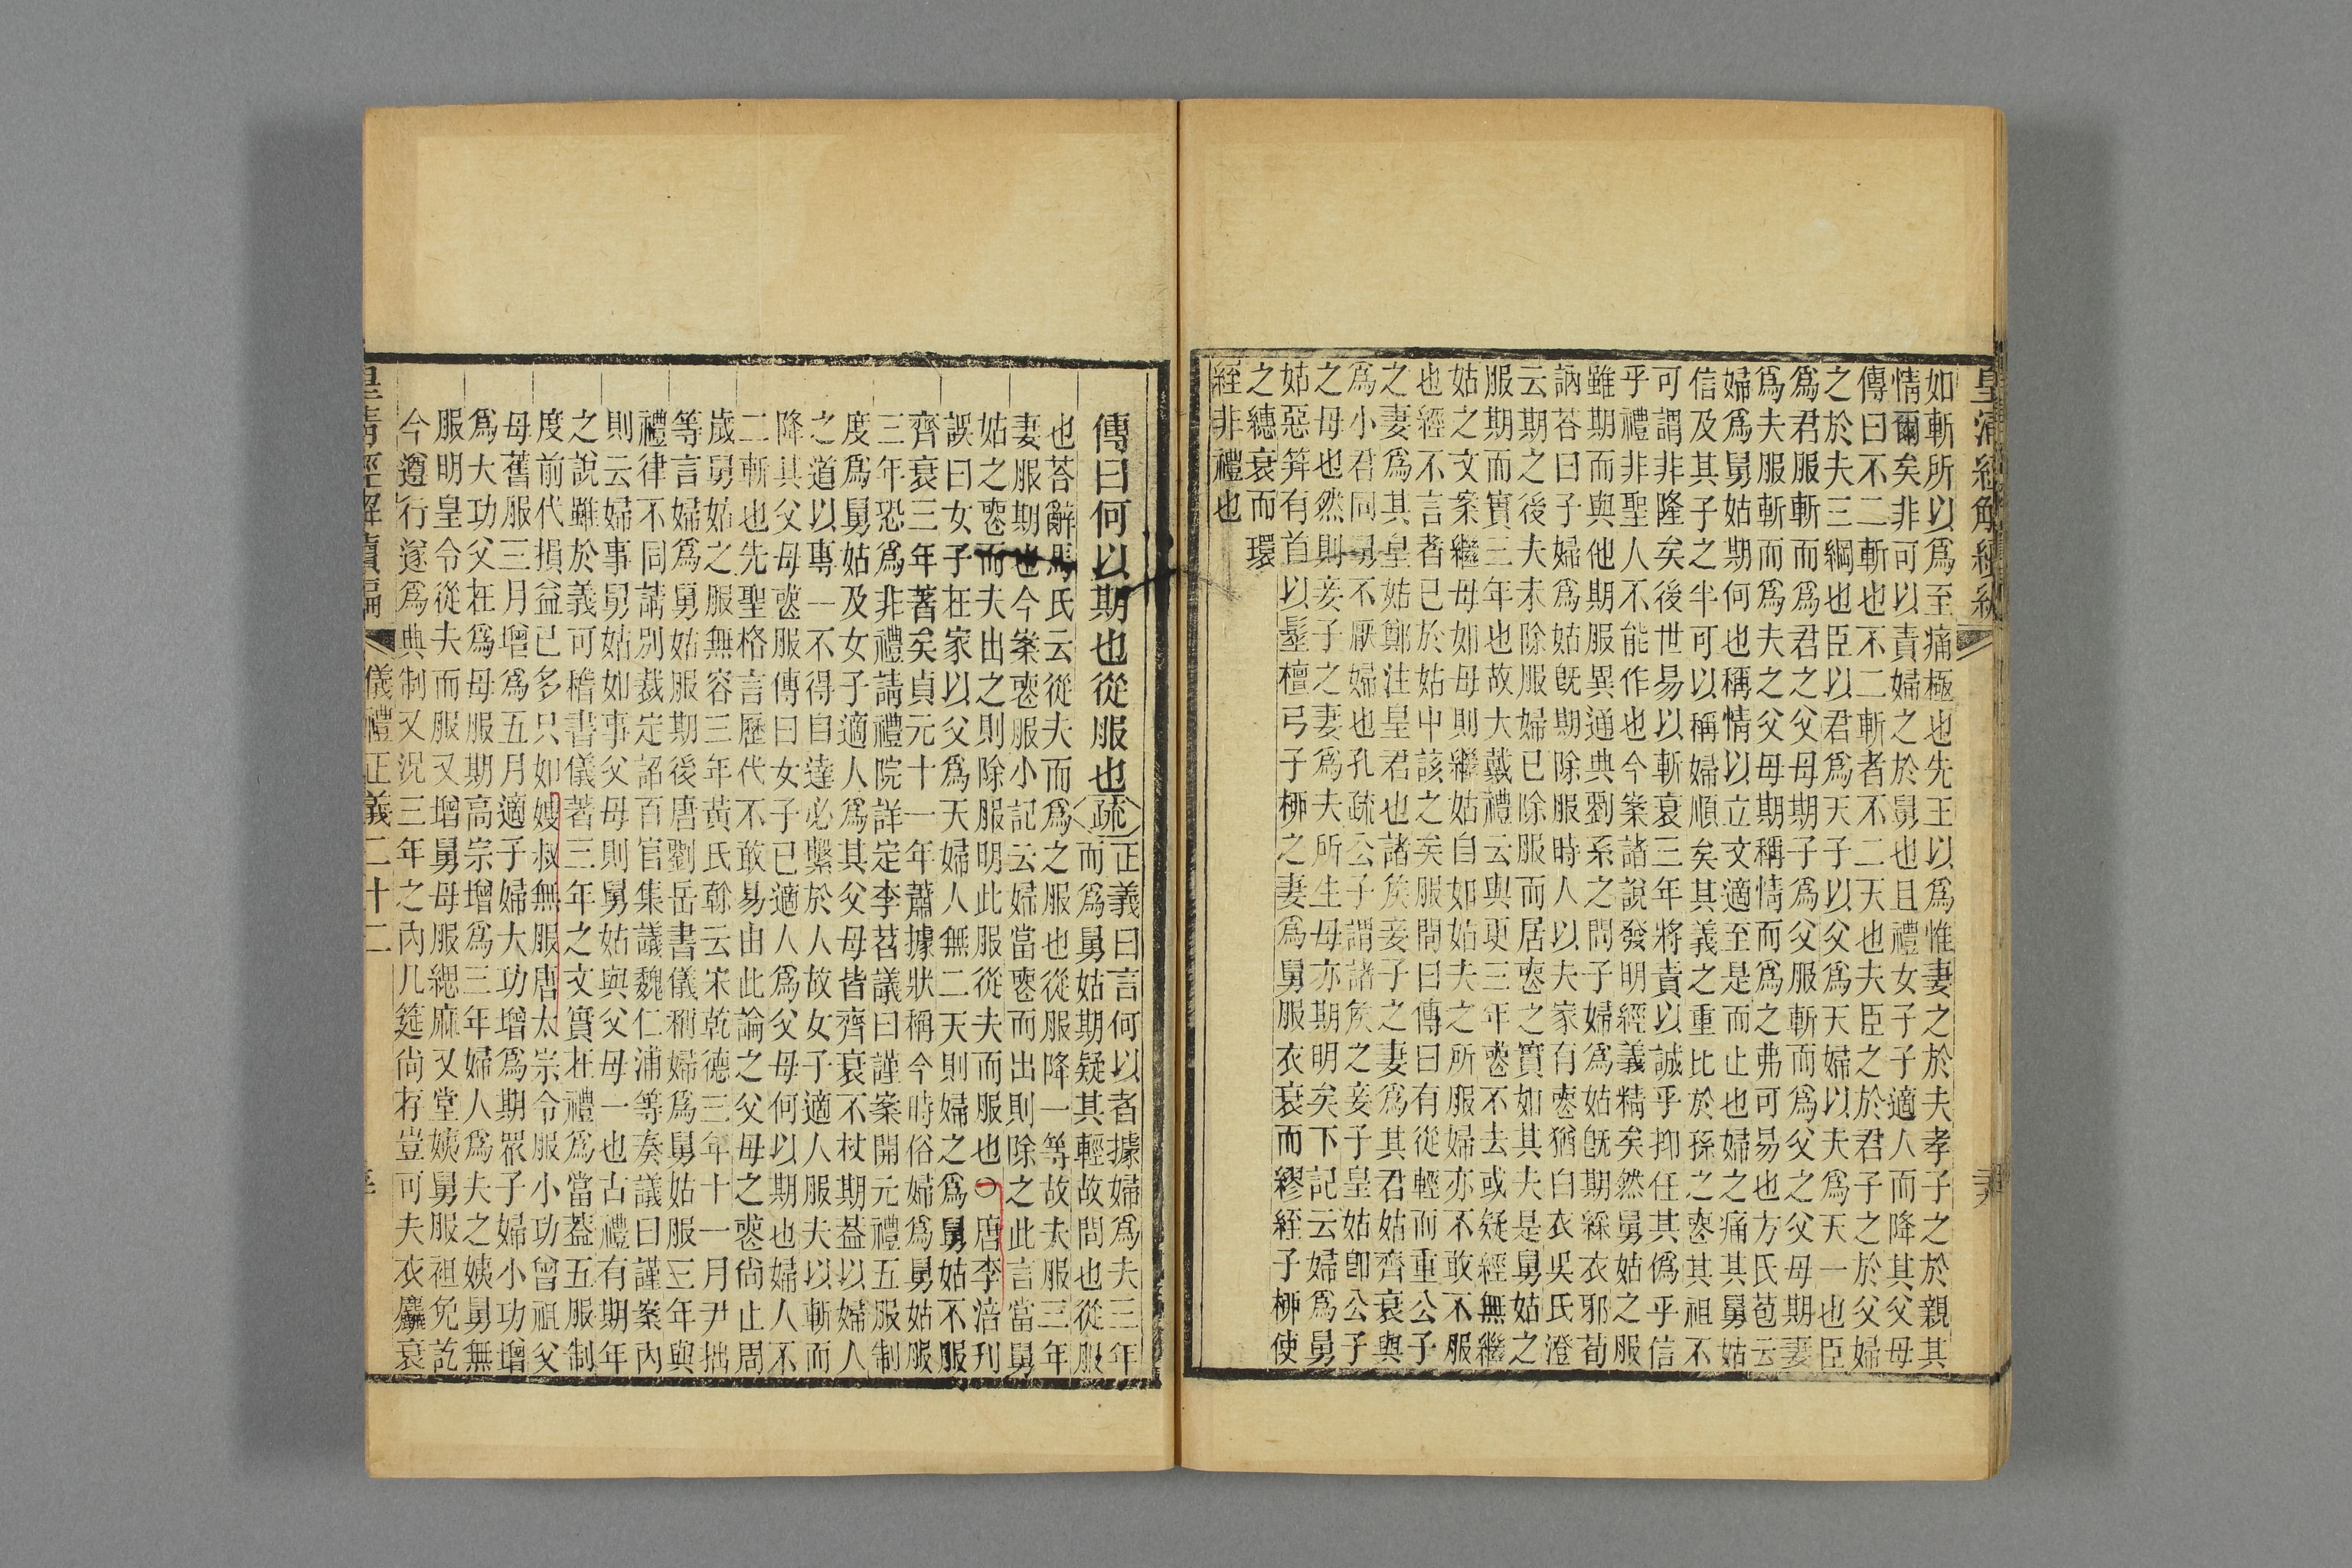 皇清經解續編
如斬所以爲至痛極也先王以爲惟妻之於夫孝子之於親其
情爾矣非可以責婦之於舅也且禮女子子適人而降其父母
傳曰不二斬也不二斬者不二天也夫臣之於君子之於父婦
之於夫三綱也臣以君爲天子以父爲天婦以夫爲天一也臣
爲君服斬而爲君之父母期子爲父服斬而爲父之父母期妻
爲夫服斬而爲夫之父母期稱情而爲之弗可易也方氏苞云
婦爲舅姑期何也稱情以立文適至是而止也婦之痛其舅姑
信及其子之半可以稱婦順矣其義之重比於孫之喪其祖不
可謂非隆矣後世易以斬衰三年將責以誠乎抑任其僞乎信
乎禮非聖人不能作也今案諸說發明經義精矣然舅姑之服
雖期而與他期服異通典劉系之問子婦爲姑旣期綵衣邪荀
訥荅曰子婦爲姑旣期除服時人以夫家有喪猶白衣吳氏澄
云期之後夫未除服婦已除服而居喪之實如其夫是舅姑之
服期而實三年也故大戴禮云與更三年喪不去或疑經無繼
姑之文案繼母如母則繼姑自如姑夫之所服婦亦不敢不服
也經不言者已於姑中該之矣服問曰傳曰有從輕而重公子
之妻爲其皇姑鄭注皇君也諸矦妾子之妻爲其君姑齊衰與
爲小君同舅不厭婦也孔疏公子謂諸矦之妾子皇姑卽公子
之母也然則妾子之妻爲夫所生母亦期明矣下記云婦爲舅
姑惡笄有首以髽檀弓子柳之妻爲舅服衣衰而繆絰子柳使
之繐衰而環
絰非禮也
傳曰何以期也從服也疏正義曰言何以者據婦爲夫三年
而爲舅姑期疑其輕故問也從服
也荅辭馬氏云從夫而爲之服也從服降一等故夫服三年
妻服期也今案喪服小記云婦當喪而出則除之此言當舅
姑之喪而夫出之則除服明此服從夫而服也○唐李涪刊
誤曰女子在家以父爲天婦人無二天則婦之爲舅姑不服
齊衰三年著矣貞元十一年蕭據狀稱今時俗婦爲舅姑服
三年恐爲非禮請禮院詳定李苕議曰謹案開元禮五服制
度爲舅姑及女子適人爲其父母皆齊衰不杖期葢以婦人
之道以專一不得自達必繫於人故女子適人服夫以斬而
降其父母喪服傳曰女子已適人爲父母何以期也婦人不
二斬也先聖格言歷代不敢易由此論之父母之喪尙止周
歲舅姑之服無容三年黃氏榦云宋乾德三年十一月尹拙
等言婦爲舅姑服期後唐劉岳書儀稱婦爲舅姑服三年與
禮律不同請別裁定詔百官集議魏仁浦等奏議曰謹案內
則云婦事舅姑如事父母則舅姑與父母一也古禮有期年
之說雖於義可稽書儀著三年之文實在禮爲當葢五服制
度前代損益已多只如嫂叔無服唐太宗令服小功曾祖父
母舊服三月增爲五月適子婦大功增爲期眾子婦小功增
爲大功父在爲母服期高宗增爲三年婦人爲夫之姨舅無
服明皇令從夫而服又增舅母服緦麻又堂姨舅服袒免訖
今遵行遂爲典制又況三年之內几筵尙存豈可夫衣麤衰
皇清經解續編 儀禮正義二十二